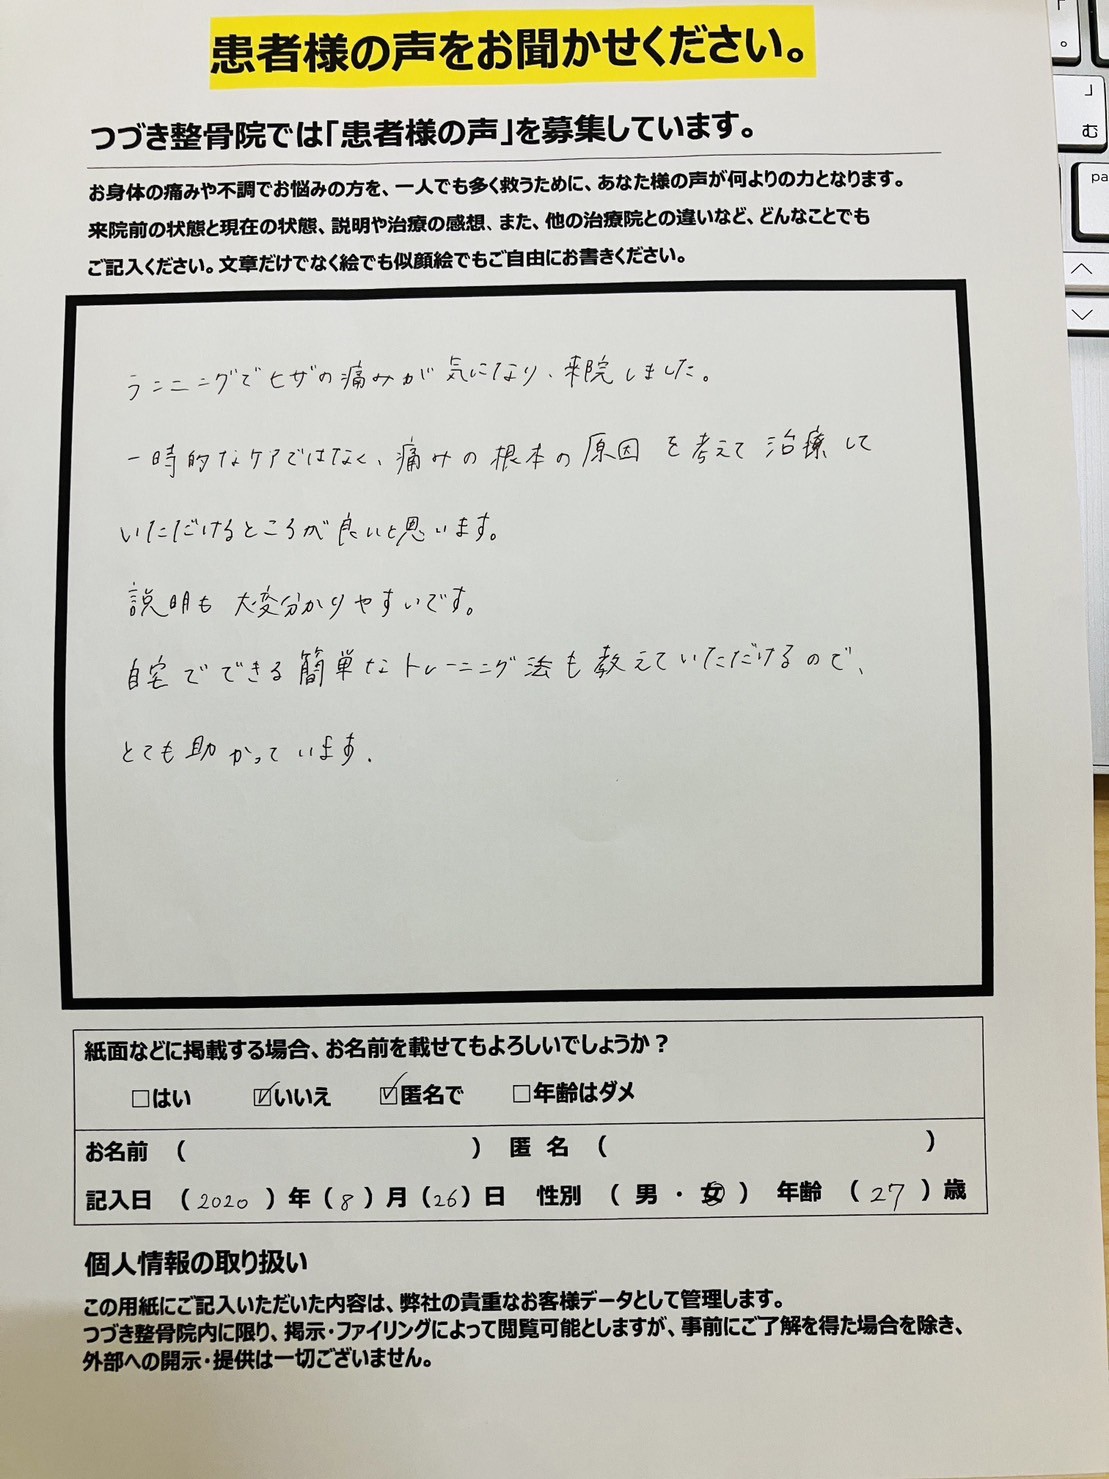 患者様の声をお聞かせください。
つづき整骨院では「患者様の声」を募集しています。
お身体の痛みや不調でお悩みの方を、一人でも多く救うために、あなた様の声が何よりの力となります。
来院前の状態と現在の状態、説明や治療の感想、また、他の治療院との違いなど、どんなことでも
ご記入ください。文章だけでなく絵でも似顔絵でもご自由にお書きください。
ランニングでヒザの痛みが気になり、来院しました。
一時的なケアではなく、痛みの根本の原因を考えて治療して
いただけるところが良いと思います。
説明も大変分かりやすいです。
自宅でできる簡単なトレーニング法も教えていただけるので、
とても助かっています.
紙面などに掲載する場合、お名前を載せてもよろしいでしょうか？
□はい ☑いいえ ☑匿名で □年齢はダメ
お名前 ( ) 匿名 ( )
記入日 (2020)年(8)月(26)日 性別 (男・女) 年齢 (27)歳
個人情報の取り扱い
この用紙にご記入いただいた内容は、弊社の貴重なお客様データとして管理します。
つづき整骨院内に限り、掲示・ファイリングによって閲覧可能としますが、事前にご了解を得た場合を除き、
外部への開示・提供は一切ございません。
「
。
」
む
pa